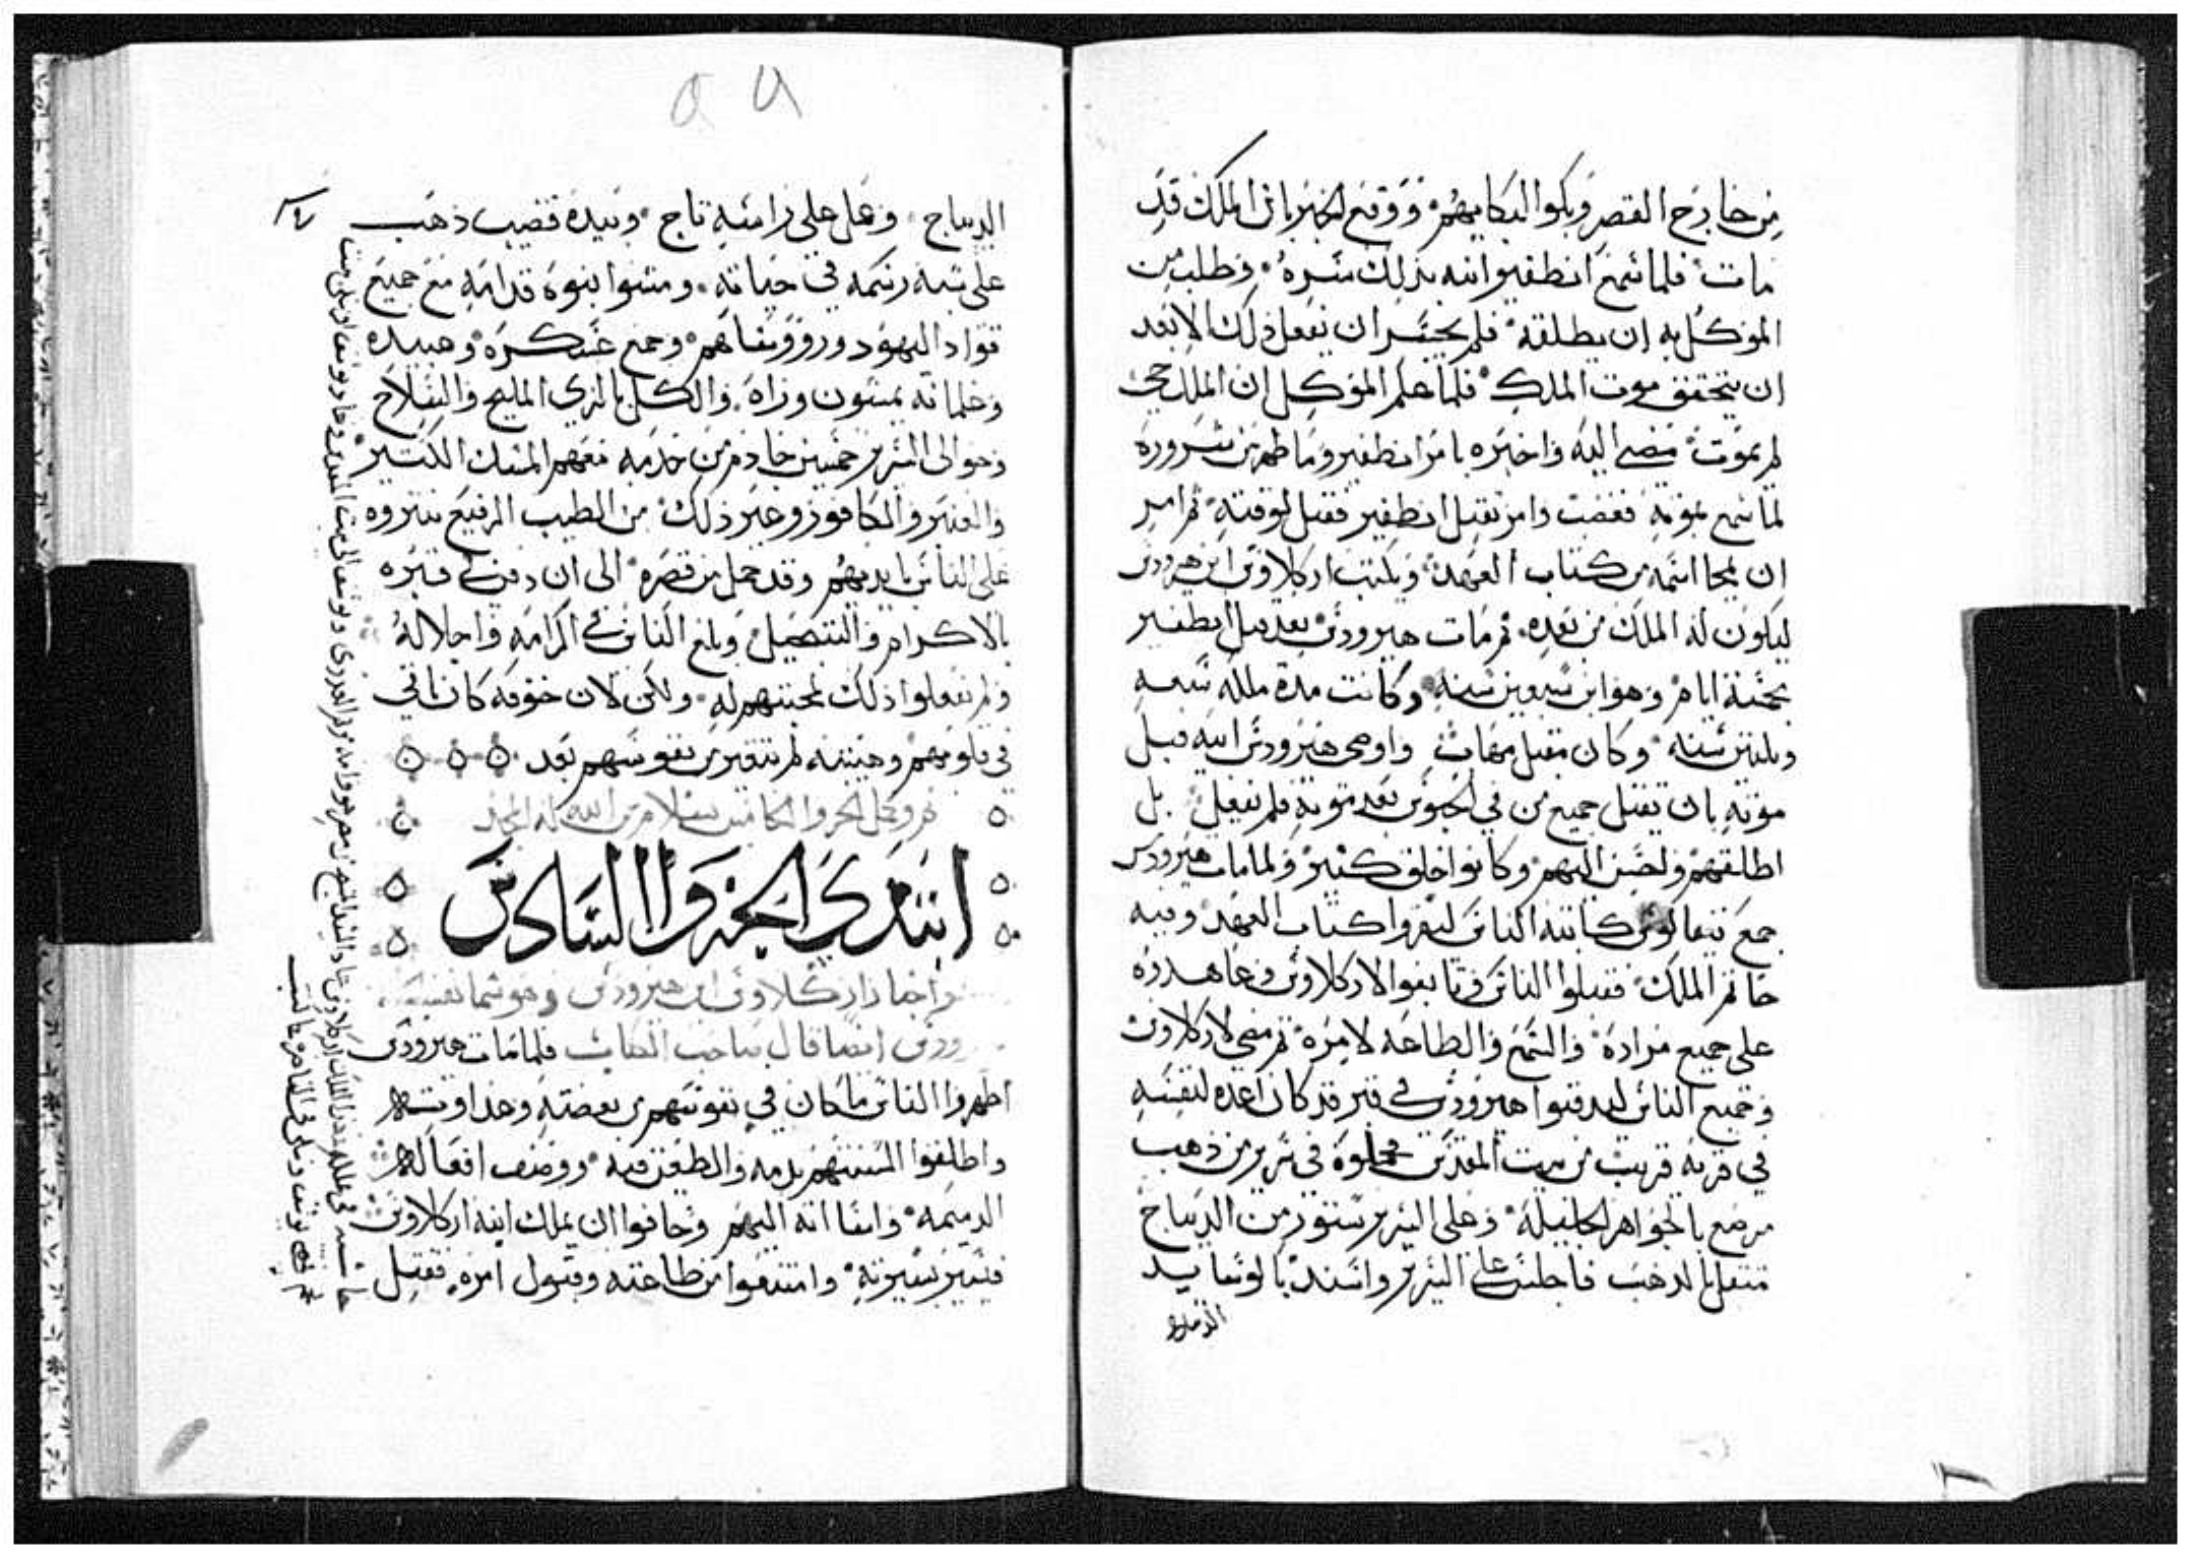 من خارج القصر وبكوا لبكايهم ووقع الخبر بان الملك قد
مات فلما سمع انطفير ابنه بذلك سره وطلب من
الموكل به ان يطلقه فلم يجسر ان يفعل ذلك الا بعد
ان يتحقق موت الملك فلما علم الموكل ان الملك حي
لم يموت مضى اليه واخبره بامر انطفير وما ظهر من سروره
لما سمع بموته فغضب وامر بقتل انطفير فقتل لوقته ثم امر
ان يمحا اسمه من كتاب العهد ويكتب اركلاوس ابن هيرودس
ليكون له الملك من بعده ثم مات هيرودس بعد قتل انطفير
بخمسة ايام وهو ابن سبعين سنه وكانت مدة ملكه سبعه
وثلثين سنه وكان مقبل مهاب واوصى هيرودس ابنه قبل
موته بان يقتل جميع من في الحبوس بعد موته فلم يفعل بل
اطلقهم ولحسن اليهم وكانوا خلق كثير ولما مات هيرودس
جمع نيقالوس كاتبه الناس ليقروا كتاب العهد وفيه
خاتم الملك فقبلوا الناس وتابعوا لاركلاوس وعاهدوه
على جميع مراده والسمع والطاعه لامره ثم مضى لاركلاوس
وجميع الناس ليدفنوا هيرودس في قبر قد كان اعده لنفسه
في قريه قريب من بيت المقدس فحملوه في سرير من ذهب
مرصع بالجواهر الجليله وعلى السرير ستور من الديباج
متقل بالذهب فاجلس على السرير واسند بالوسايد
الديباج وعلى راسه تاج وبيده قضيب ذهب
على شبه رسمه في حياته ومشوا بنوه قدامه مع جميع
قواد اليهود وروووساهم وجميع عسكره وعبيده
وغلمانه يمشون وراه والكل بالزي المليح والسلاح
وحوالى السرير خمسين خادم من خدمه معهم المسك الكثير
والعنبر والكافور وغير ذلك من الطيب الرفيع ينثروه
على الناس بايديهم وقد حمل من قصره الى ان دفن في قبره
بالاكرام والتبجيل وبلغ الناس في اكرامه واجلاله
ولم يفعلوا ذلك لمحبتهم له ولكن لان خوفه كان باقي
في قلوبهم وهيبته لم تتغير من نفوسهم بعد
تم وكمل الجزو الخامس بسلام من الله له المجد
ابتدي الجزو السادس
واخبار اركلاوس ابن هيرودس وهو سما نفسه
هيرودس ايضا قال صاحب الكتاب فلما مات هيرودس
اظهروا الناس ما كان في نفوسهم من بغضته وعداوته
واطلقوا السنتهم بذمه والطعن فيه ووصف افعاله
الدميمه واسااته اليهم وخافوا ان يملك ابنه اركلاوس
فيسير بسيرته وامتنعوا من طاعته وقبول امره فقتل